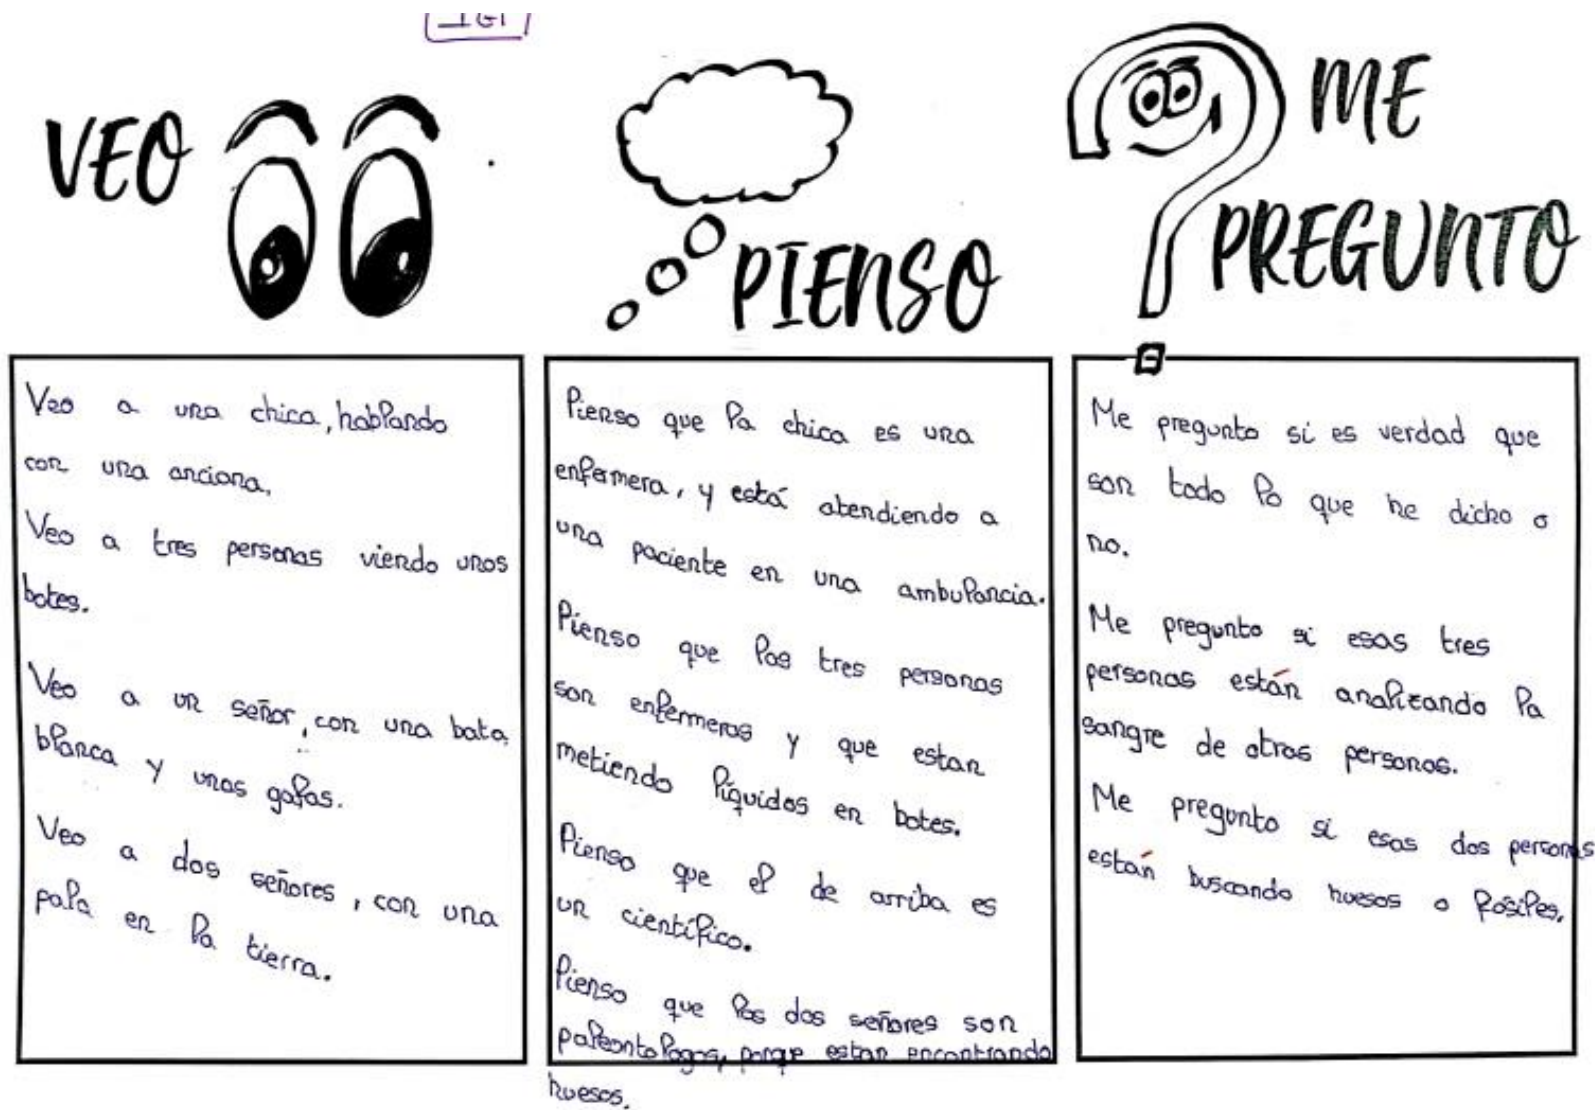 VEO
Veo a una chica, hablando
con una anciana.
Veo a tres personas viendo unos
botes.
Veo a un señor, con una bata
blanca y unas gafas.
Veo a dos señores, con una
pala en la tierra.
PIENSO
Pienso que la chica es una
enfermera, y está atendiendo a
una paciente en una ambulancia.
Pienso que las tres personas
son enfermeras y que estan
metiendo líquidos en botes.
Pienso que el de arriba es
un científico.
Pienso que los dos señores son
paleontologos, porque estan encontrando
huesos.
ME
PREGUNTO
Me pregunto si es verdad que
son todo lo que he dicho o
no.
Me pregunto si esas tres
personas están analizando la
sangre de otras personas.
Me pregunto si esas dos personas
están buscando huesos o fósiles.